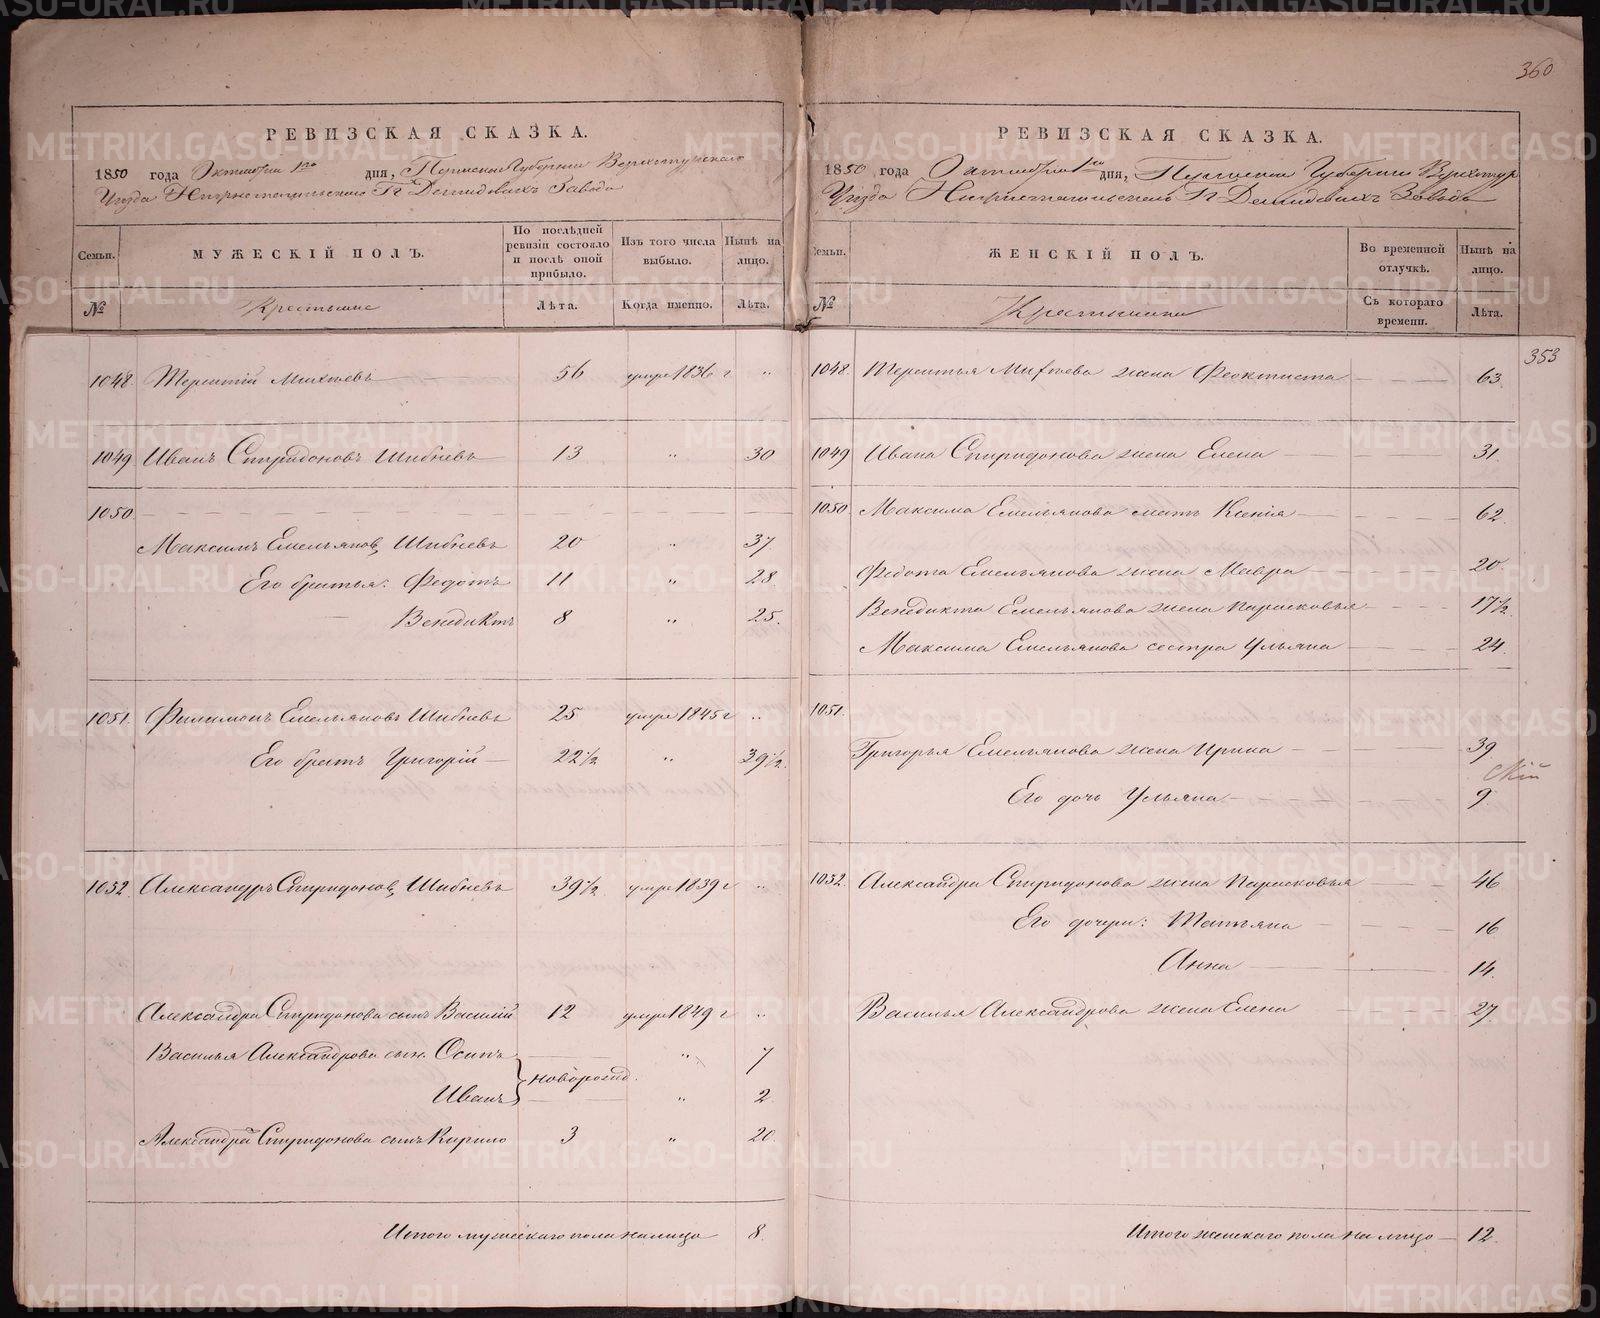 360
РЕВИЗСКАЯ СКАЗКА.
1850 года Октября 1го дня, Пермской Губернии Верхотурскаго
Уезда Нижнетагильскаго Гг Демидовыхъ Завода
Семьи.
МУЖЕСКІЙ ПОЛЪ.
По послѣдней ревизіи состояло и послѣ оной прибыло.
Изъ того числа выбыло.
Нынѣ на лицо.
№
Крестьяне
Лѣта.
Когда именно.
Лѣта.
1048. Терентій Михѣевъ 56 умре 1836 г "
1049 Иванъ Спиридоновъ Шибневъ 13 " 30
1050.
Максимъ Емельянов, Шибневъ 20 " 37
Его братья: Федотъ 11 " 28
Венедиктъ 8 " 25.
1051. Филимонъ Емельяновъ Шибневъ 25 умре 1845 г "
Его братъ Григорій 22 1/2 " 39 1/2.
1052. Александръ Спиридонов, Шибневъ 39 1/2 умре 1839 г "
Александра Спиридонова сынъ Василій 12 умре 1849 г "
Василья Александрова сын. Осипъ новорожд. " 7
Иванъ " 2
Александра Спиридонова сынъ Кирило 3 " 20.
Итого мужескаго пола налицо 8.
РЕВИЗСКАЯ СКАЗКА.
1850 года Октября 1го дня, Пермской Губернии Верхотур
Уезда Нижнетагильскаго Гг Демидовыхъ Завода
Семьи.
ЖЕНСКІЙ ПОЛЪ.
Во временной отлучкѣ.
Нынѣ на лицо.
№
Крестьянки
Съ котораго времени.
Лѣта.
353
1048. Терентья Михѣева жена Феоктиста 63.
1049 Ивана Спиридонова жена Елена 31.
1050 Максима Емельянова мать Ксенія 62.
Федота Емельянова жена Мавра 20
Венедикта Емельянова жена Парасковья 17 1/2.
Максима Емельянова сестра Ульяна 24.
1051.
Григорья Емельянова жена Ирина 39
Его дочь Ульяна 9.
1052. Александра Спиридонова жена Парасковья 46
Его дочери: Татьяна 16
Анна 14.
Василья Александрова жена Елена 27.
Итого женскаго пола на лицо 12.
METRIKI.GASO-URAL.RU